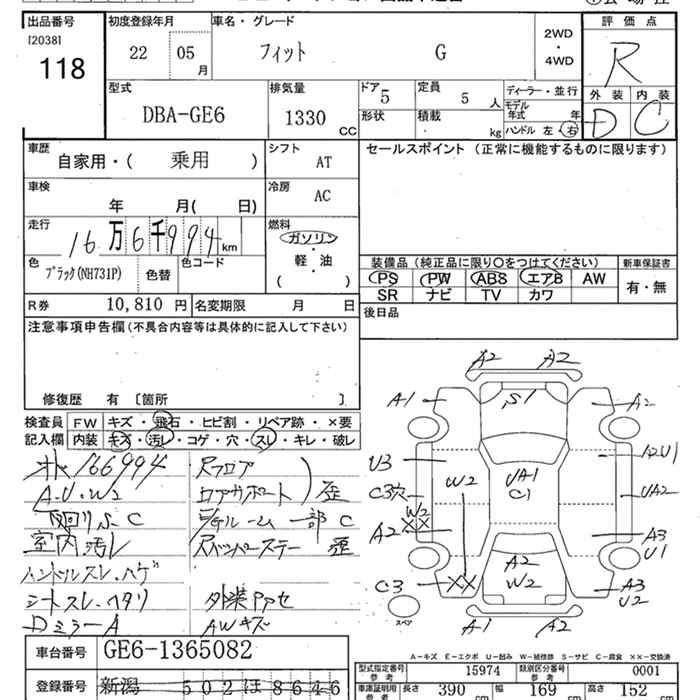 出品番号 初度登録年月 車名・グレード 評価点
[2038]
118 22 05 月 フィット G 2WD・4WD R
型式 排気量 ドア 5 定員 5 人 ディーラー・並行 外装 内装
DBA-GE6 1330 CC 形状 積載 kg モデル年式 年 D C
ハンドル 左・右
車歴 自家用・( 乗用 ) シフト AT セールスポイント (正常に機能するものに限ります)
車検 年 月( 日) 冷房 AC
走行 16万6千994 km 燃料 ガソリン 軽・油 ( )
色 ブラック(NH731P) 色替 色コード 装備品 (純正品に限り○をつけてください) 新車保証書
PS PW ABS エアB AW 有・無
SR ナビ TV カワ
R券 10,810 円 名変期限 月 日 後日品
注意事項申告欄(不具合内容等は具体的に記入して下さい)
修復歴 有 [箇所 ]
検査員記入欄 FW キズ・飛石・ヒビ割・リペア跡・×要
内装 キズ・汚レ・コゲ・穴・スレ・キレ・破レ
166994
A.U.W2
下回りS.C
室内汚レ
ハンドルスレ.ハゲ
シートスレ.ヘタリ
DミラーA
Rフロア
ロアサポート 歪
一部C
歪
外装
AWキズ
A2 A2
A1 S1 A2
U3 W2 UA1 A2U1
C3穴 C1 UA2
W2
XX
A2 A2 A3
W2 U1
C3 XX A3
U2
スペア A1 A2
A-キズ E-エクボ U-凹み W-補修跡 S-サビ C-腐食 XX-交換済
車台番号 GE6-1365082
型式指定番号 参考 15974 類別区分番号 参考 0001
登録番号 新潟 502 ほ 8646
車庫証明用 参考 長さ 390 cm 幅 169 cm 高さ 152 cm